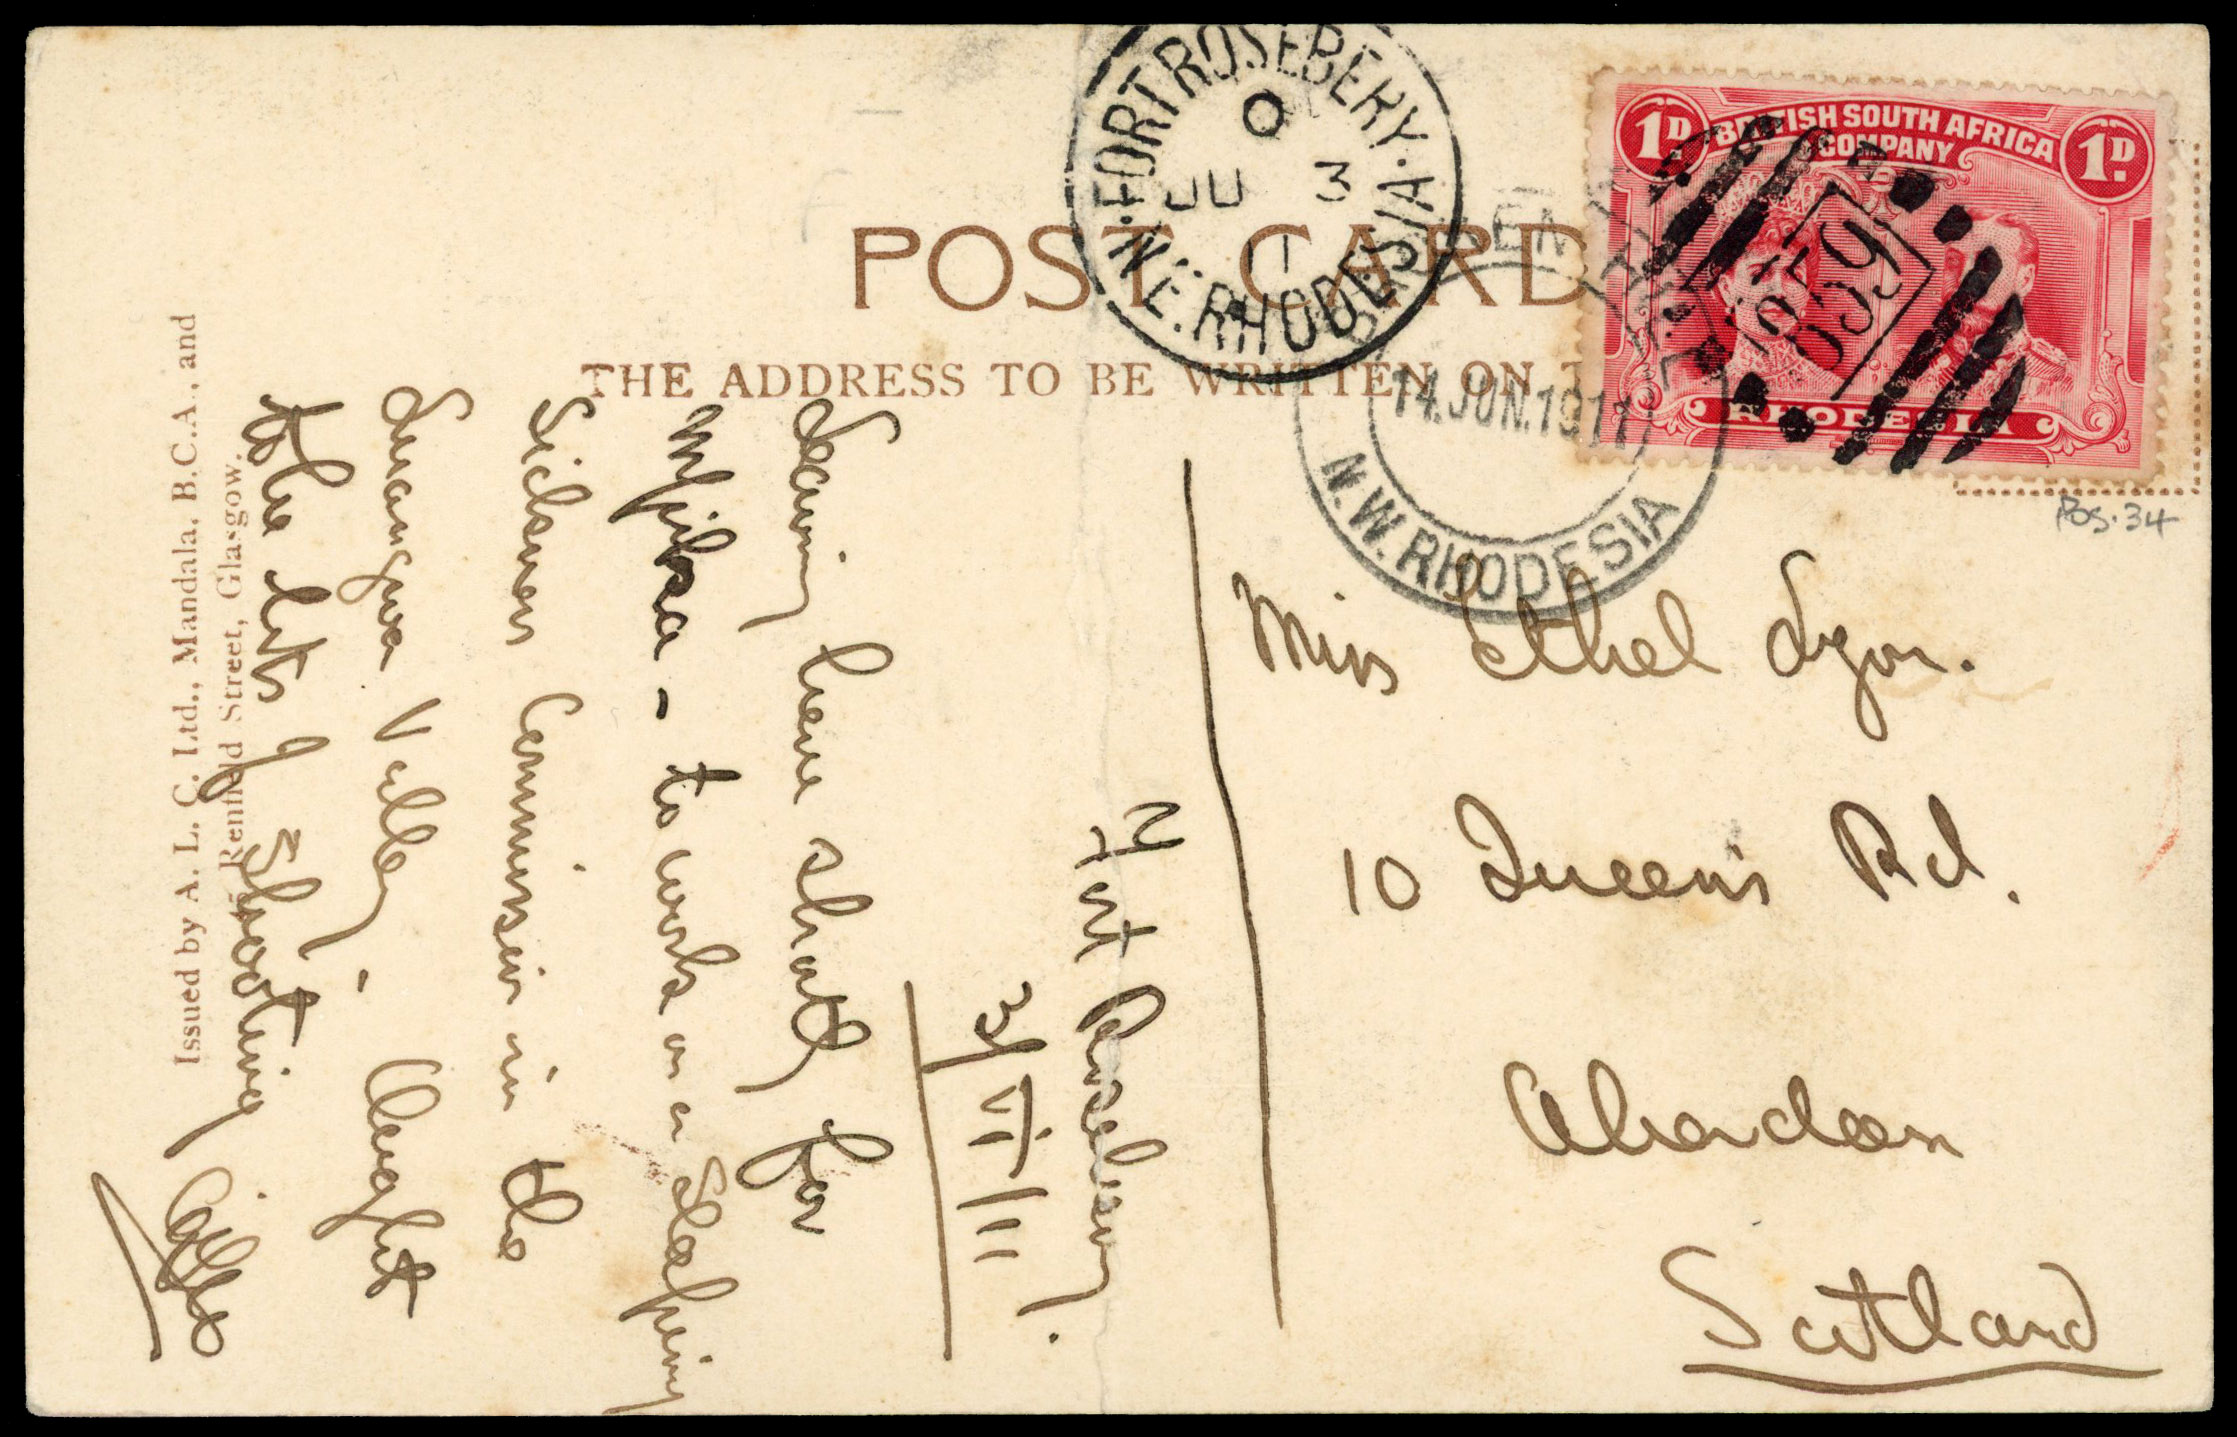 FORT ROSEBERY.
O
JU 3
11
N.E. RHODESIA
14.JUN.1911
N.W. RHODESIA
1D. BRITISH SOUTH AFRICA 1D.
COMPANY
RHODESIA
859
POST CARD
THE ADDRESS TO BE WRITTEN ON T
Pos. 34
Issued by A. L. C. Ltd., Mandala, B.C.A., and
Renfield Street, Glasgow.
Fort Rosebery.
3/VI/11
Leaving here shortly for
Mpika - to work on a Sleeping
Sickness Commission in the
Luangwa Valley - Caught
the lots of Shooting
Miss Ethel Lyon.
10 Queen's Rd.
Aberdeen
Scotland